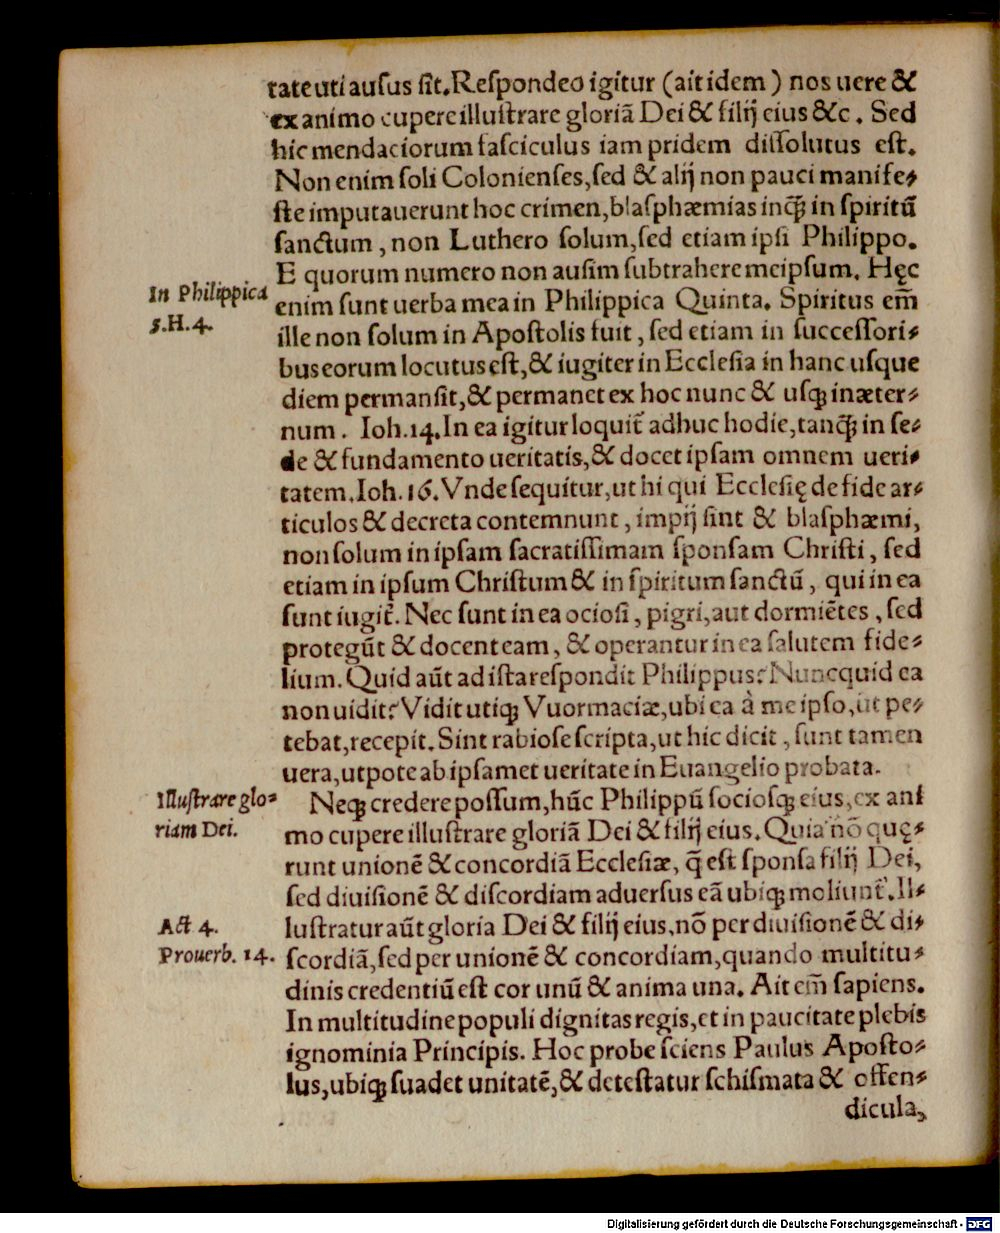 tate uti ausus sit. Respondeo igitur (ait idem) nos uere &
ex animo cupere illustrare gloriā Dei & filij eius &c. Sed
hic mendaciorum fasciculus iam pridem dissolutus est.
Non enim soli Colonienses, sed & alij non pauci manife⸗
ste imputauerunt hoc crimen, blasphæmias inqꝫ̃ in spiritū
sanctum, non Luthero solum, sed etiam ipsi Philippo.
E quorum numero non ausim subtrahere meipsum. Hęc
In Philippica
enim sunt uerba mea in Philippica Quinta. Spiritus em̄
5.H.4.
ille non solum in Apostolis fuit, sed etiam in successori⸗
bus eorum locutus est, & iugiter in Ecclesia in hanc usque
diem permansit, & permanet ex hoc nunc & usqꝫ in æter⸗
num. Ioh.14. In ea igitur loquit̃ adhuc hodie, tanqꝫ̃ in se⸗
de & fundamento ueritatis, & docet ipsam omnem ueri⸗
tatem. Ioh.16. Vnde sequitur, ut hi qui Ecclesię de fide ar⸗
ticulos & decreta contemnunt, impij sint & blasphæmi,
non solum in ipsam sacratissimam sponsam Christi, sed
etiam in ipsum Christum & in spiritum sanctū, qui in ea
sunt iugit̃. Nec sunt in ea ociosi, pigri, aut dormiētes, sed
protegūt & docent eam, & operantur in ea salutem fide⸗
lium. Quid aūt ad ista respondit Philippus? Nuncquid ea
non uidit? Vidit utiqꝫ Vuormaciæ, ubi ea à me ipso, ut pe⸗
tebat, recepit. Sint rabiose scripta, ut hic dicit, sunt tamen
uera, utpote ab ipsamet ueritate in Euangelio probata.
Illustrare glo⸗
riam Dei.
Neqꝫ credere possum, hūc Philippū sociosqꝫ eius, ex ani
mo cupere illustrare gloriā Dei & filij eius. Quia nō quę⸗
runt unionē & concordiā Ecclesiæ, q̄ est sponsa filij Dei,
sed diuisionē & discordiam aduersus eā ubiqꝫ moliunt̃. Il⸗
Act 4.
lustratur aūt gloria Dei & filij eius, nō per diuisionē & di⸗
Prouerb. 14.
scordiā, sed per unionē & concordiam, quando multitu⸗
dinis credentiū est cor unū & anima una. Ait em̄ sapiens.
In multitudine populi dignitas regis, et in paucitate plebis
ignominia Principis. Hoc probe sciens Paulus Aposto⸗
lus, ubiqꝫ suadet unitatē, & detestatur schismata & offen⸗
dicula,
Digitalisierung gefördert durch die Deutsche Forschungsgemeinschaft - DFG